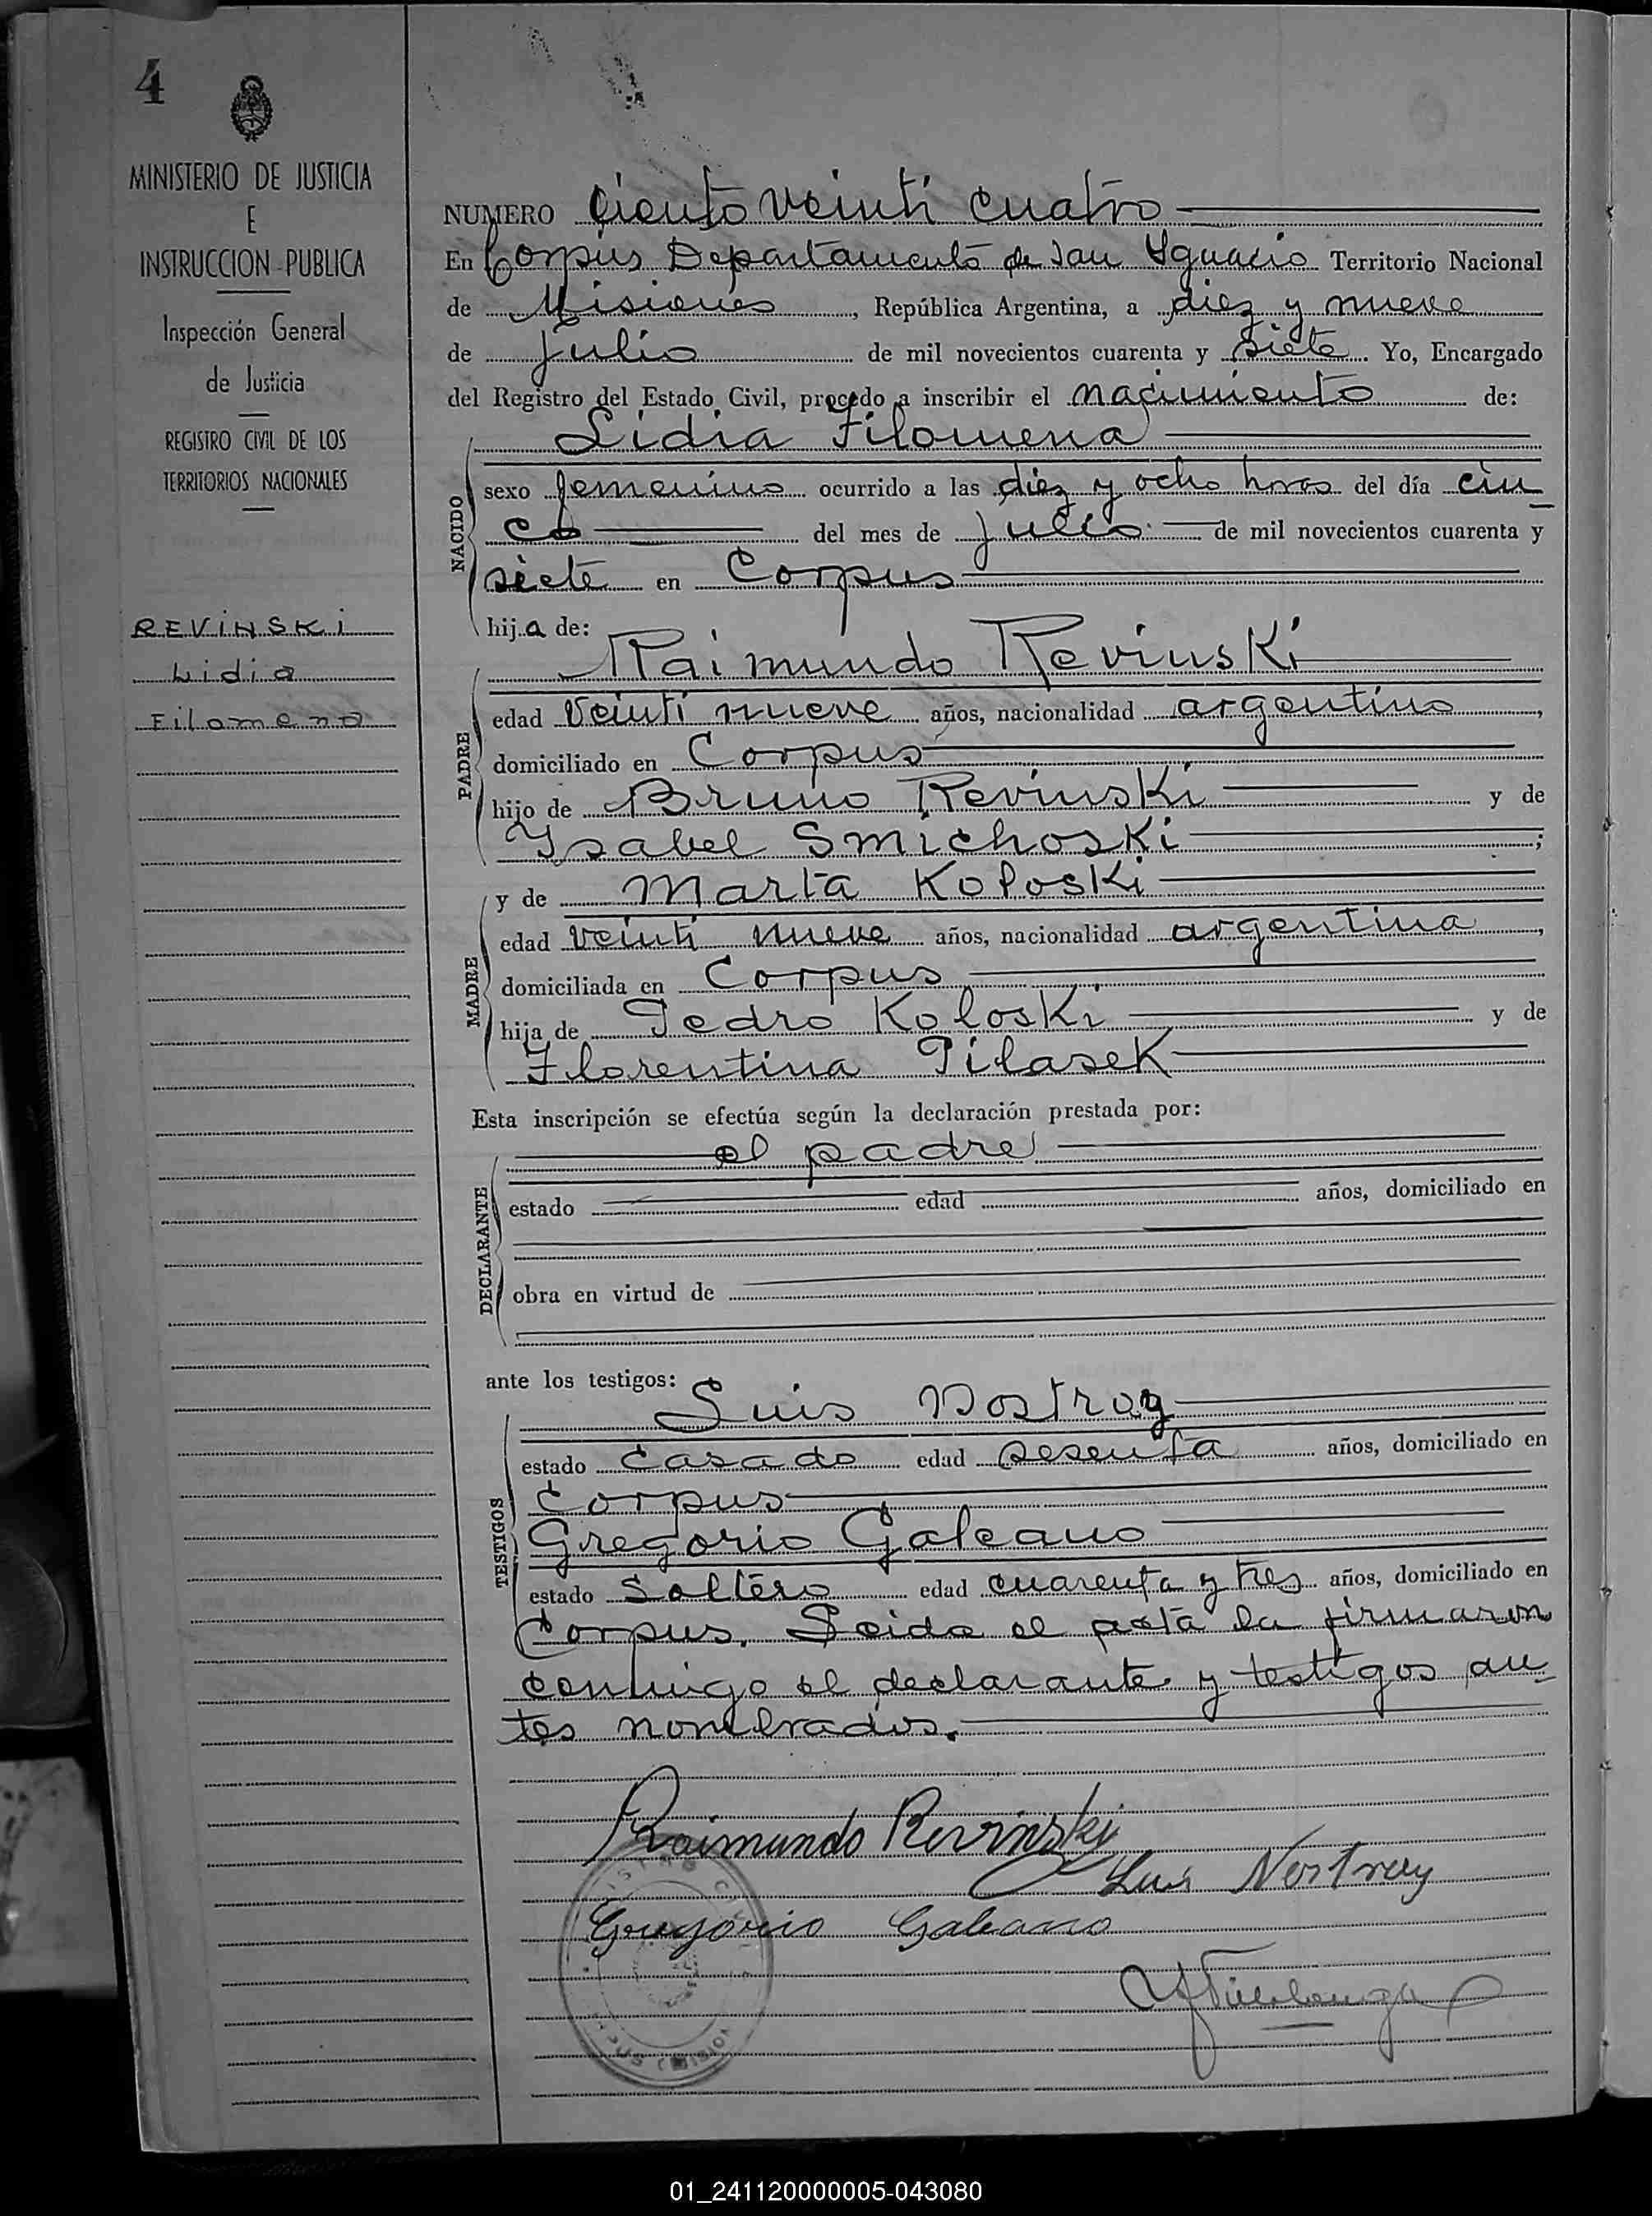 4
MINISTERIO DE JUSTICIA
E
INSTRUCCION PUBLICA
Inspección General
de Justicia
REGISTRO CIVIL DE LOS
TERRITORIOS NACIONALES
REVINSKI
Lidia
Filomena
NUMERO Ciento veinti cuatro
En Corpus Departamento de San Ygnacio Territorio Nacional
de Misiones, República Argentina, a diez y nueve
de Julio de mil novecientos cuarenta y siete. Yo, Encargado
del Registro del Estado Civil, procedo a inscribir el nacimiento de:
Lidia Filomena
NACIDO
sexo femenino ocurrido a las diez y ocho horas del día cin
co del mes de julio de mil novecientos cuarenta y
siete en Corpus
hija de:
Raimundo Revinski
PADRE
edad veinti nueve años, nacionalidad argentino,
domiciliado en Corpus
hijo de Bruno Revinski y de
Ysabel Smichoski;
y de Marta Koloski
MADRE
edad veinti nueve años, nacionalidad argentina,
domiciliada en Corpus
hija de Pedro Koloski y de
Florentina Pilasek
Esta inscripción se efectúa según la declaración prestada por:
el padre
DECLARANTE
estado edad años, domiciliado en
obra en virtud de
ante los testigos:
Luis Nostray
TESTIGOS
estado casado edad sesenta años, domiciliado en
Corpus
Gregorio Galeano
estado soltero edad cuarenta y tres años, domiciliado en
Corpus. Leida el acta la firmaron
conmigo el declarante y testigos an
tes nombrados.
Raimundo Revinski
Luis Nostray
Gregorio Galeano
01_241120000005-043080